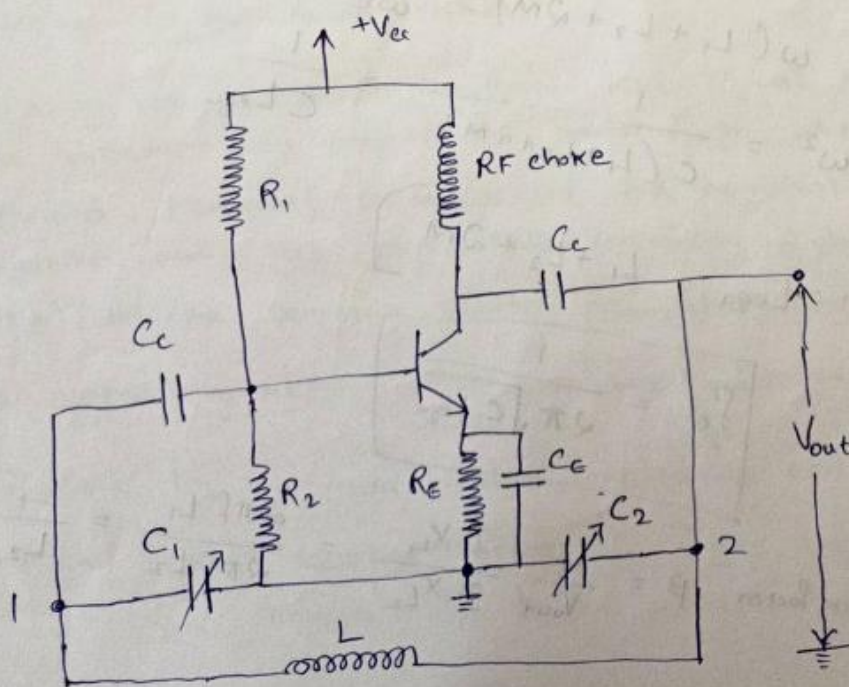 +Vcc
R1
RF choke
Cc
Cc
R2
RE
CE
C1
C2
Vout
1
2
L